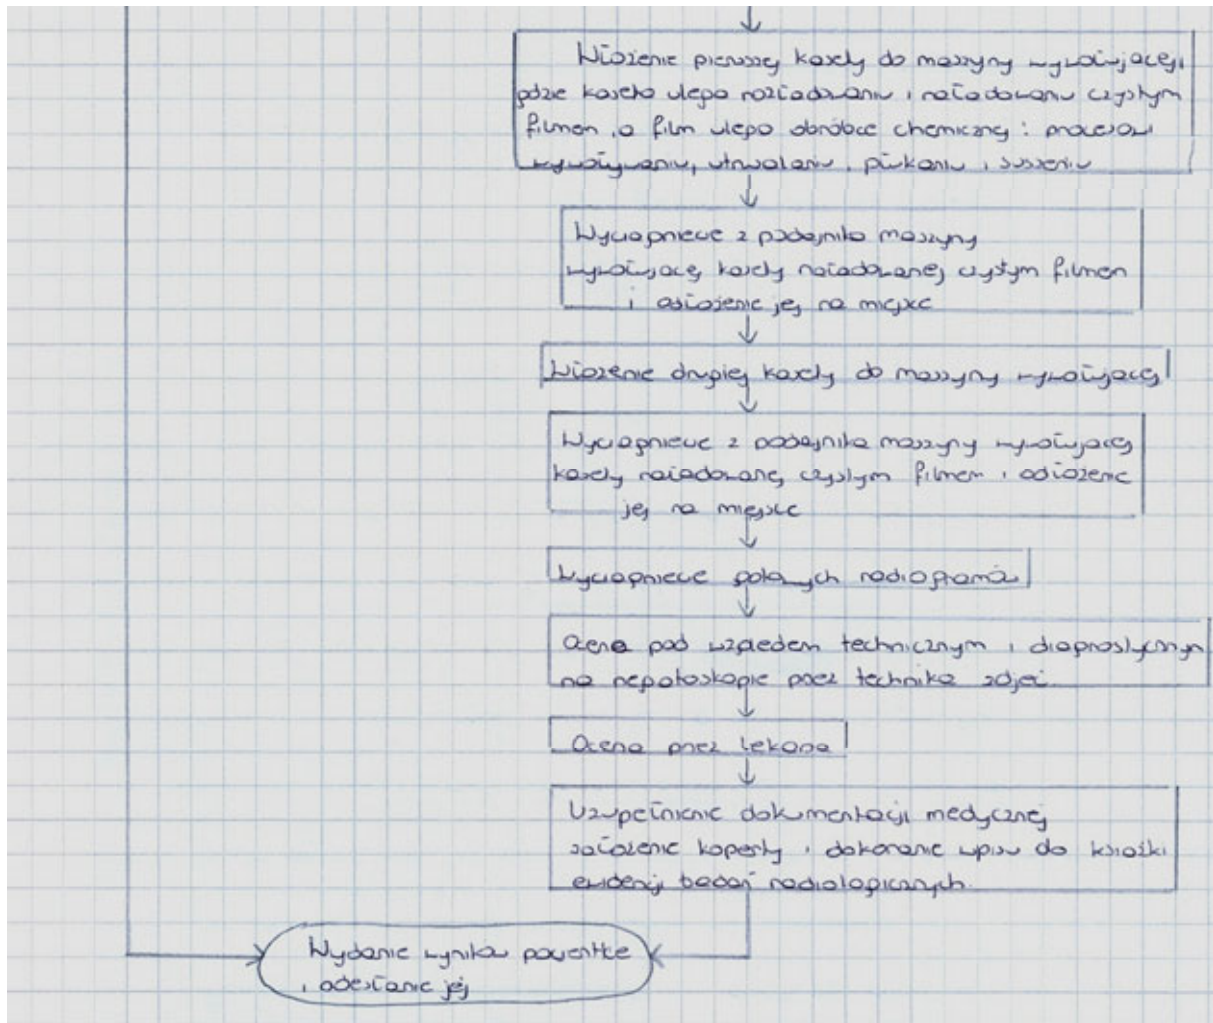 Włożenie pierwszej kasety do maszyny wywołującej,
gdzie kaseta ulega rozładowaniu i naładowaniu czystym
filmem, a film ulega obróbce chemicznej: procesowi
wywoływaniu, utrwalaniu, płukaniu i suszeniu
Wyciągnięcie z podajnika maszyny
wywołującej kasety naładowanej czystym filmem
i odłożenie jej na miejsce
Włożenie drugiej kasety do maszyny wywołującej
Wyciągnięcie z podajnika maszyny wywołującej
kasety naładowanej czystym filmem i odłożenie
jej na miejsce
Wyciągnięcie gotowych radiogramów
Ocena pod względem technicznym i diagnostycznym
na negatoskopie przez technika zdjęć.
Ocena przez lekarza
Uzupełnienie dokumentacji medycznej
założenie koperty i dokonanie wpisu do książki
ewidencji badań radiologicznych.
Wydanie wyników pacjentce
i odesłanie jej